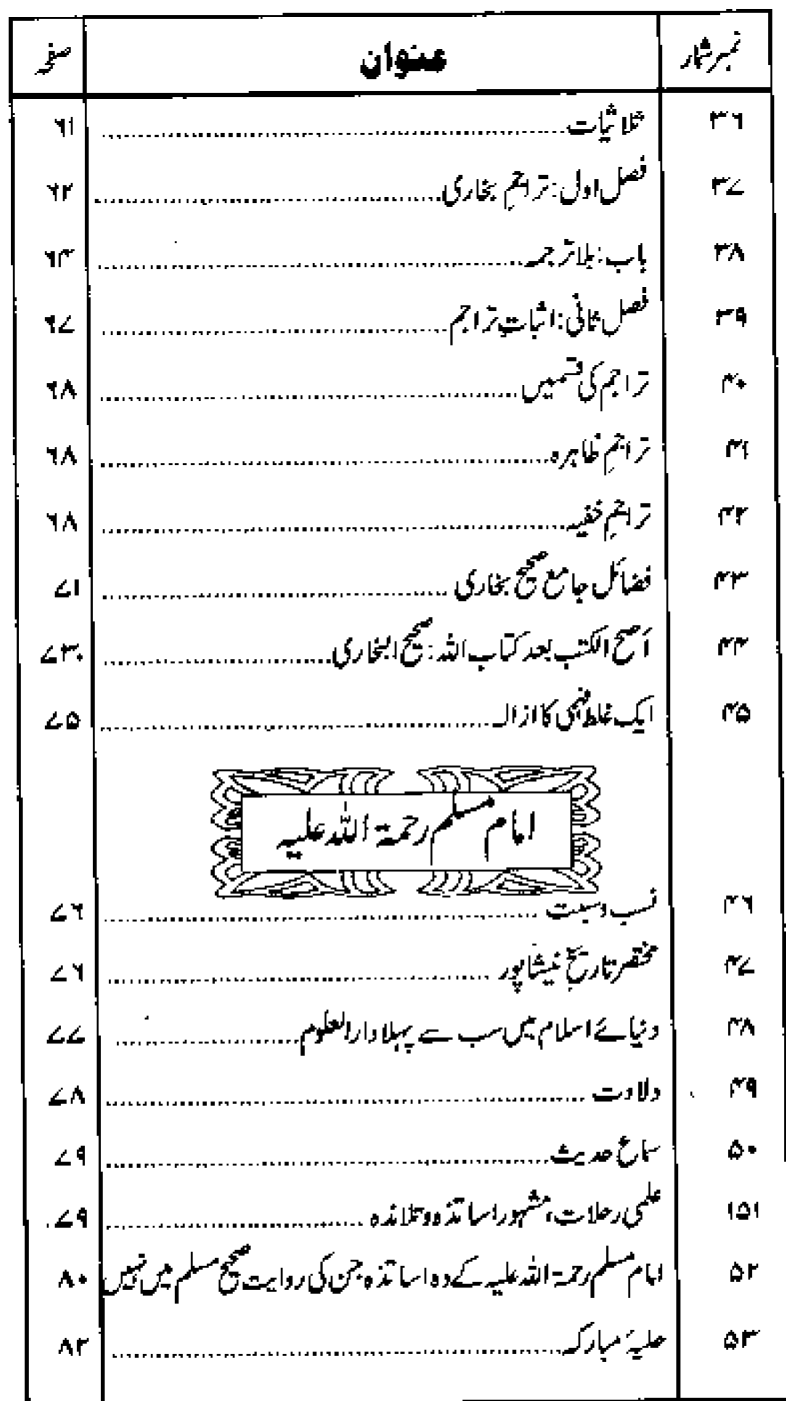 نمبر شمار عنوان صفحہ
۳۶ ثلاثیات ۶۱
۳۷ فصل اول: تراجمِ بخاری ۶۲
۳۸ باب: بلاترجمہ ۶۴
۳۹ فصل ثانی: اثباتِ تراجم ۶۷
۴۰ تراجم کی قسمیں ۶۸
۴۱ تراجمِ ظاہرہ ۶۸
۴۲ تراجمِ خفیہ ۶۸
۴۳ فضائل جامع صحیح بخاری ۷۱
۴۴ أصح الکتب بعد کتاب اللہ: صحیح البخاری ۷۳
۴۵ ایک غلط فہمی کا ازالہ ۷۵
امام مسلم رحمۃ اللہ علیہ
۴۶ نسب ونسبت ۷۶
۴۷ مختصر تاریخ نیشاپور ۷۶
۴۸ دنیائے اسلام میں سب سے پہلا دارالعلوم ۷۷
۴۹ ولادت ۷۸
۵۰ سماع حدیث ۷۹
۱۵۱ علمی رحلات، مشہور اساتذہ وتلامذہ ۷۹
۵۲ امام مسلم رحمۃ اللہ علیہ کے وہ اساتذہ جن کی روایت صحیح مسلم میں نہیں ۸۰
۵۳ حلیۂ مبارکہ ۸۲